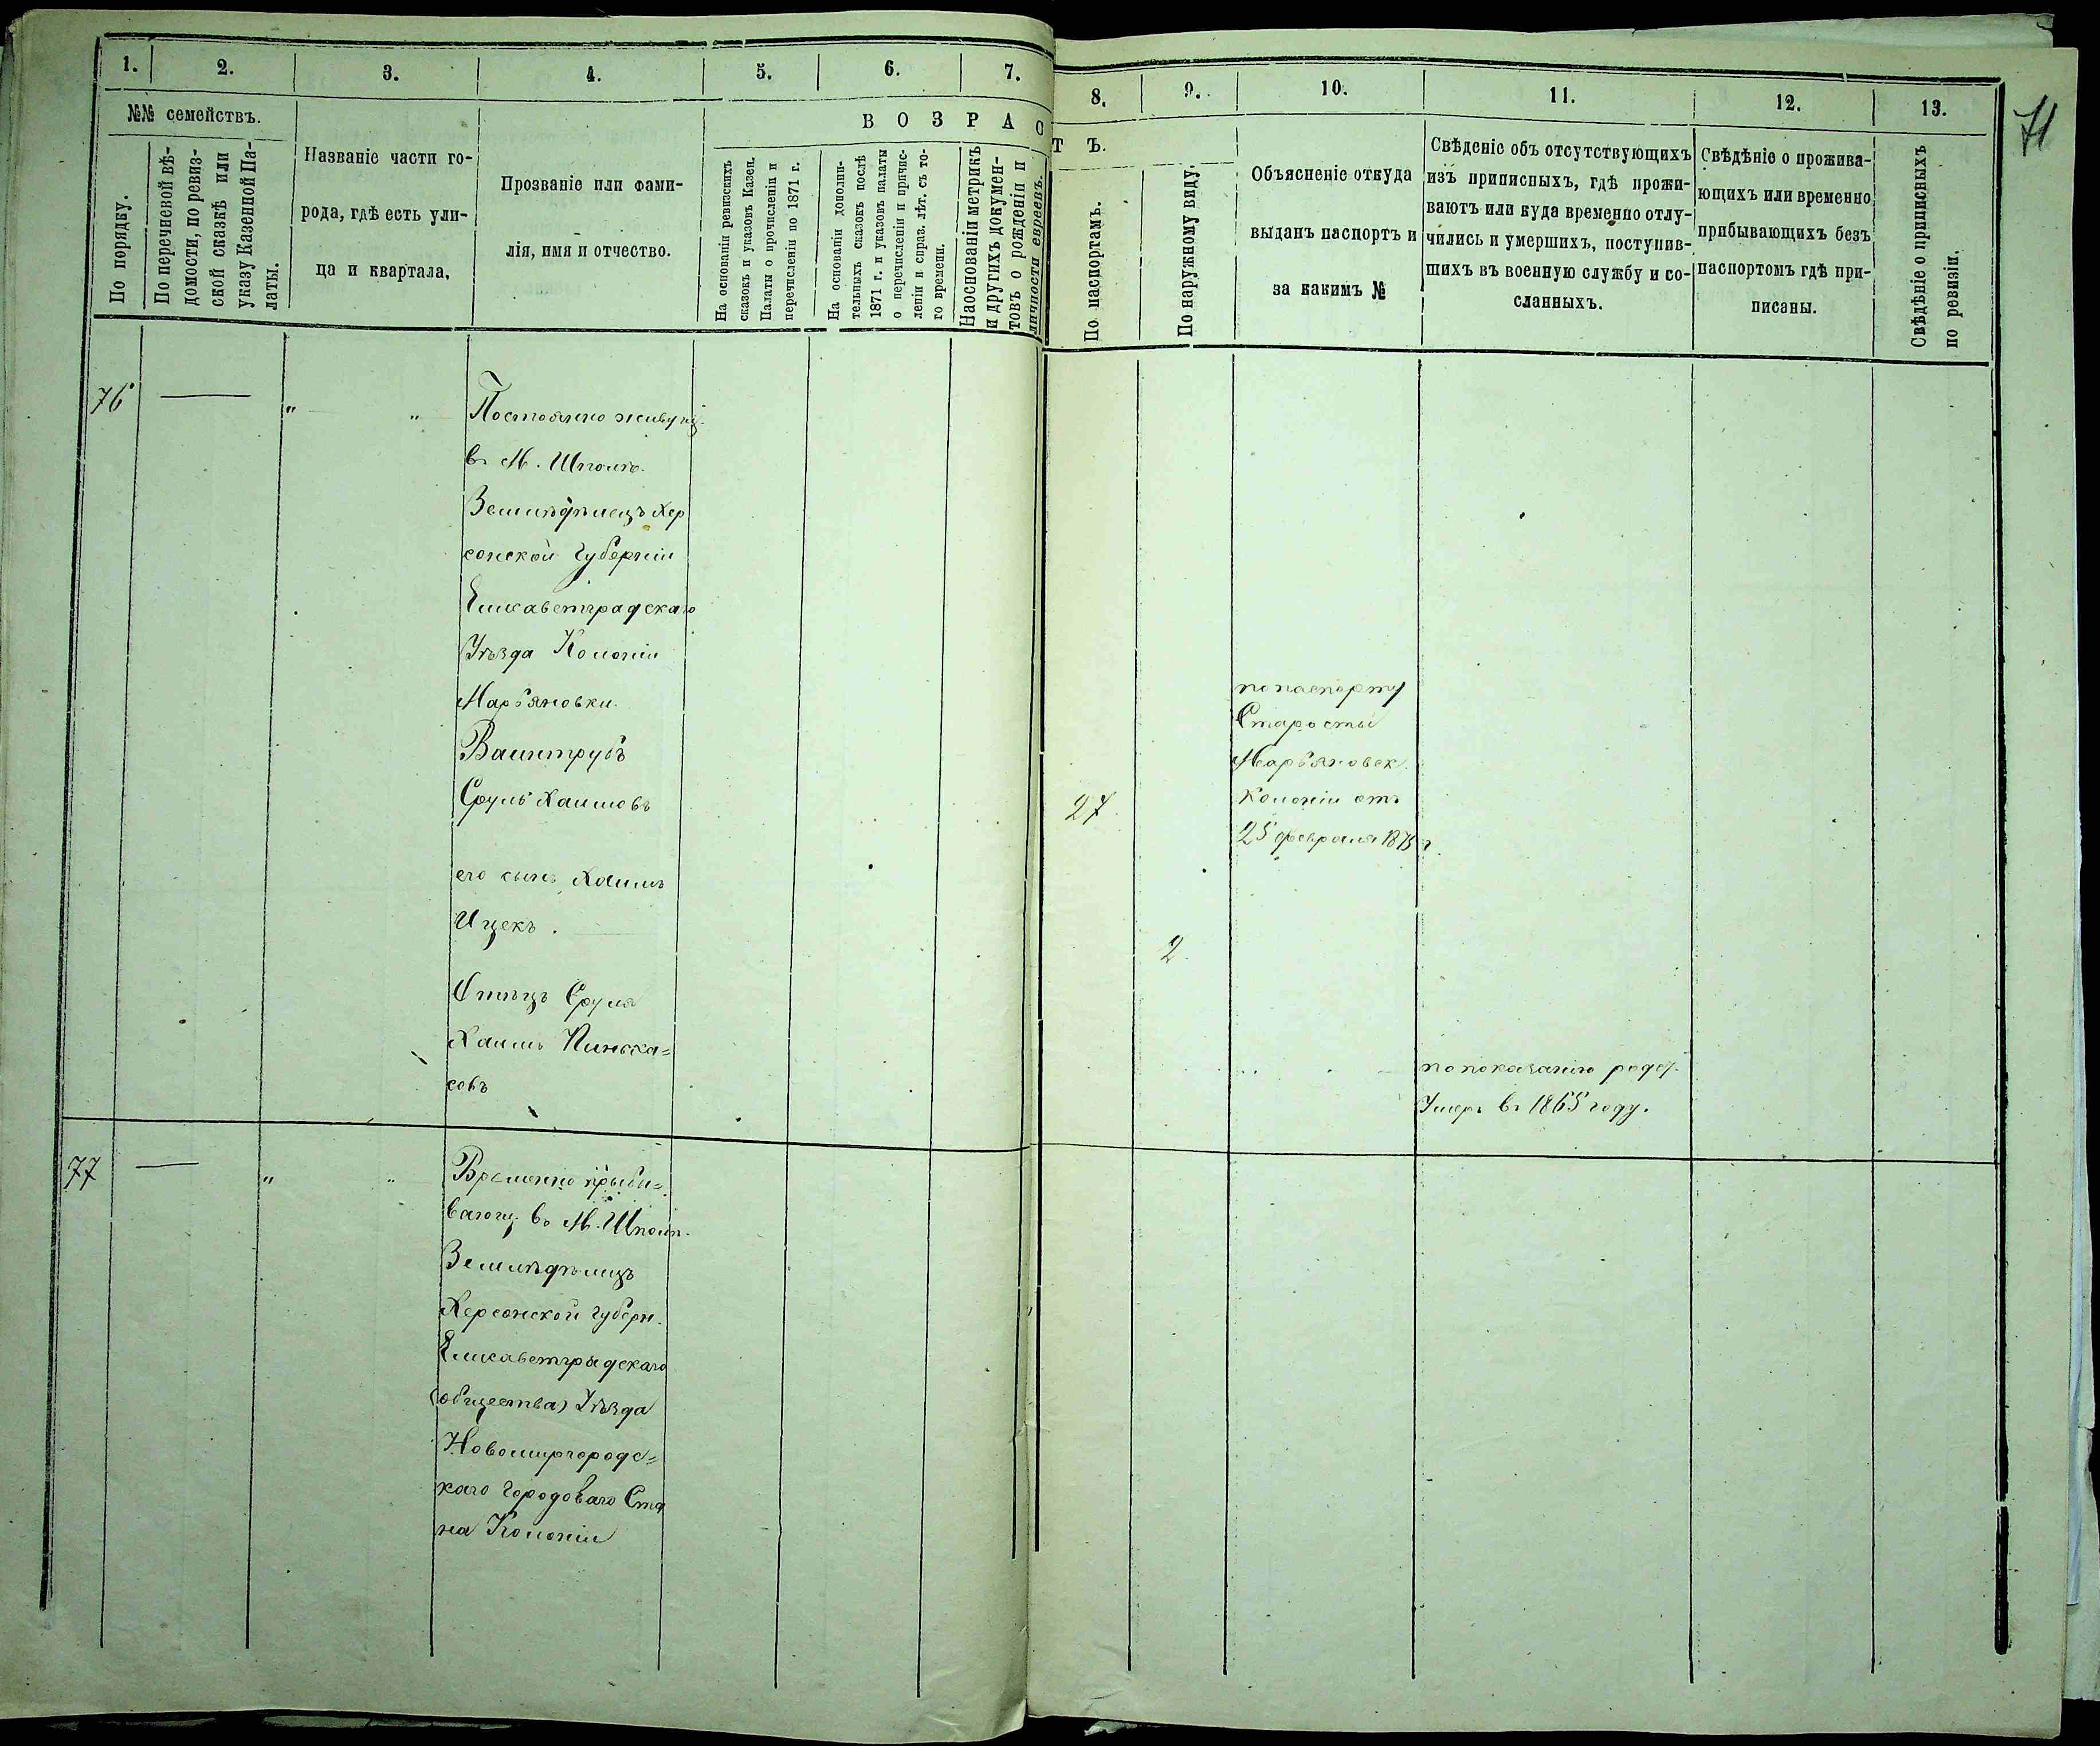 1.
2.
3.
4.
5.
6.
7.
8.
9.
10.
11.
12.
13.
71
№№ семействъ.
По порядку.
По перечневой вѣ-
домости, по ревиз-
ской сказкѣ или
указу Казенной Па-
латы.
Названіе части го-
рода, гдѣ есть ули-
ца и квартала.
Прозваніе или фами-
лія, имя и отчество.
ВОЗРАС
ТЪ.
На основаніи ревизскихъ
сказокъ и указовъ Казен.
Палаты о причисленіи и
перечисленіи по 1871 г.
На основаніи дополни-
тельныхъ сказокъ послѣ
1871 г. и указовъ палаты
о перечисленіи и причис-
леніи и справ. лѣт. съ то-
го времени.
На основаніи метрикъ
и другихъ докумен-
товъ о рожденіи и
личности евреевъ.
По паспортамъ.
По наружному виду.
Объясненіе откуда
выданъ паспортъ и
за какимъ №
Свѣденіе объ отсутствующихъ
изъ приписныхъ, гдѣ прожи-
ваютъ или куда временно отлу-
чились и умершихъ, поступив-
шихъ въ военную службу и со-
сланныхъ.
Свѣдѣніе о прожива-
ющихъ или временно
прибывающихъ безъ
паспортомъ гдѣ при-
писаны.
Свѣдѣніе о приписныхъ
по ревизіи.
76 — " "
Постоянно живущ.
въ М. Шполѣ.
Земледѣлецъ Хер
сонской Губерніи
Елисаветградскаго
Уѣзда Колоніи
Марьяновки.
Ваинтрубъ
Сруль Хаимовъ
27
по паспорту
Старосты
Марьяновск.
Колоніи отъ
25 февраля 187 г.
его сынъ Хаимъ
Ицекъ.
2.
Отецъ Сруля
Хаимъ Пиньха=
совъ
по показанію род
Умеръ въ 1865 году.
77 — " "
Временно прыбы=
вающ. въ М. Шполѣ.
Земледѣлицъ
Херсонской губерн.
Елисаветградскаго
(общества) Уѣзда
Новомиргородс=
каго Городоваго Ста
на Колоніи